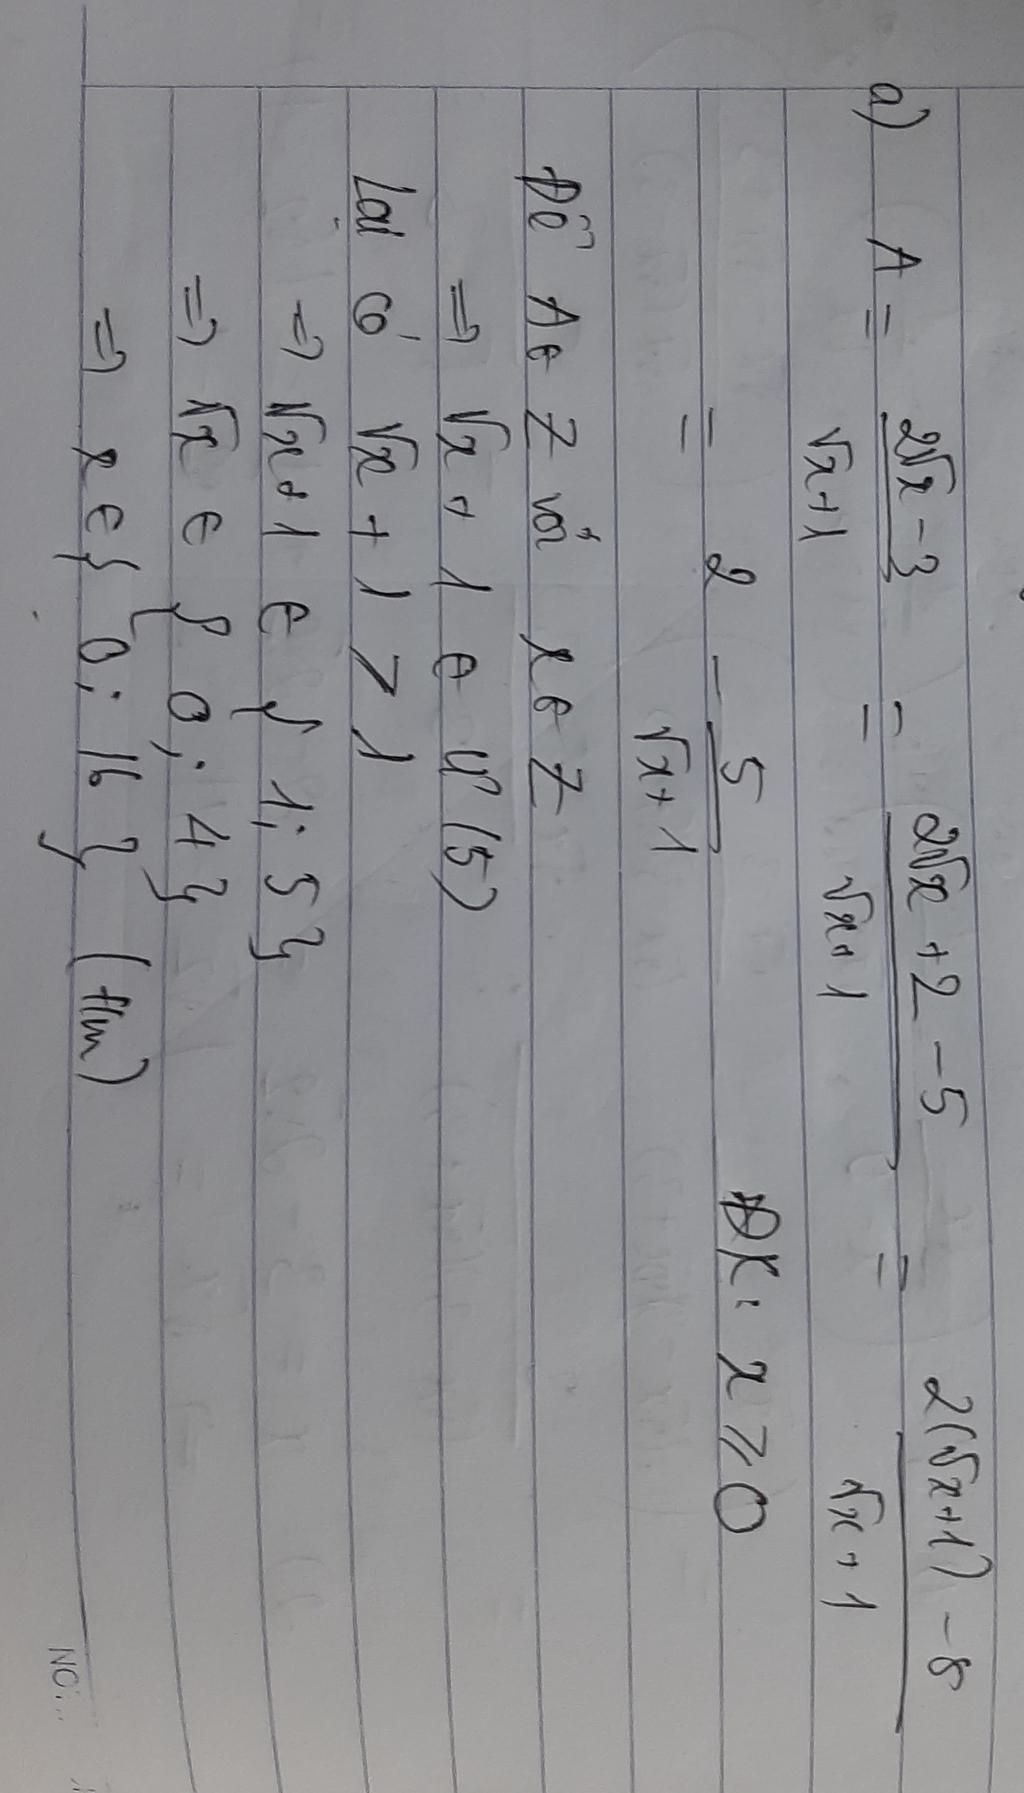 a) A = 2√x - 3 / √x + 1 = 2√x + 2 - 5 / √x + 1 = 2(√x + 1) - 8 / √x + 1
= 2 - 5 / √x + 1 ĐK: x ≥ 0
Để A ∈ Z với x ∈ Z
=> √x + 1 ∈ Ư(5)
Lại có √x + 1 > 1
=> √x + 1 ∈ { 1; 5 }
=> √x ∈ { 0; 4 }
=> x ∈ { 0; 16 } (t/m)
NO:..